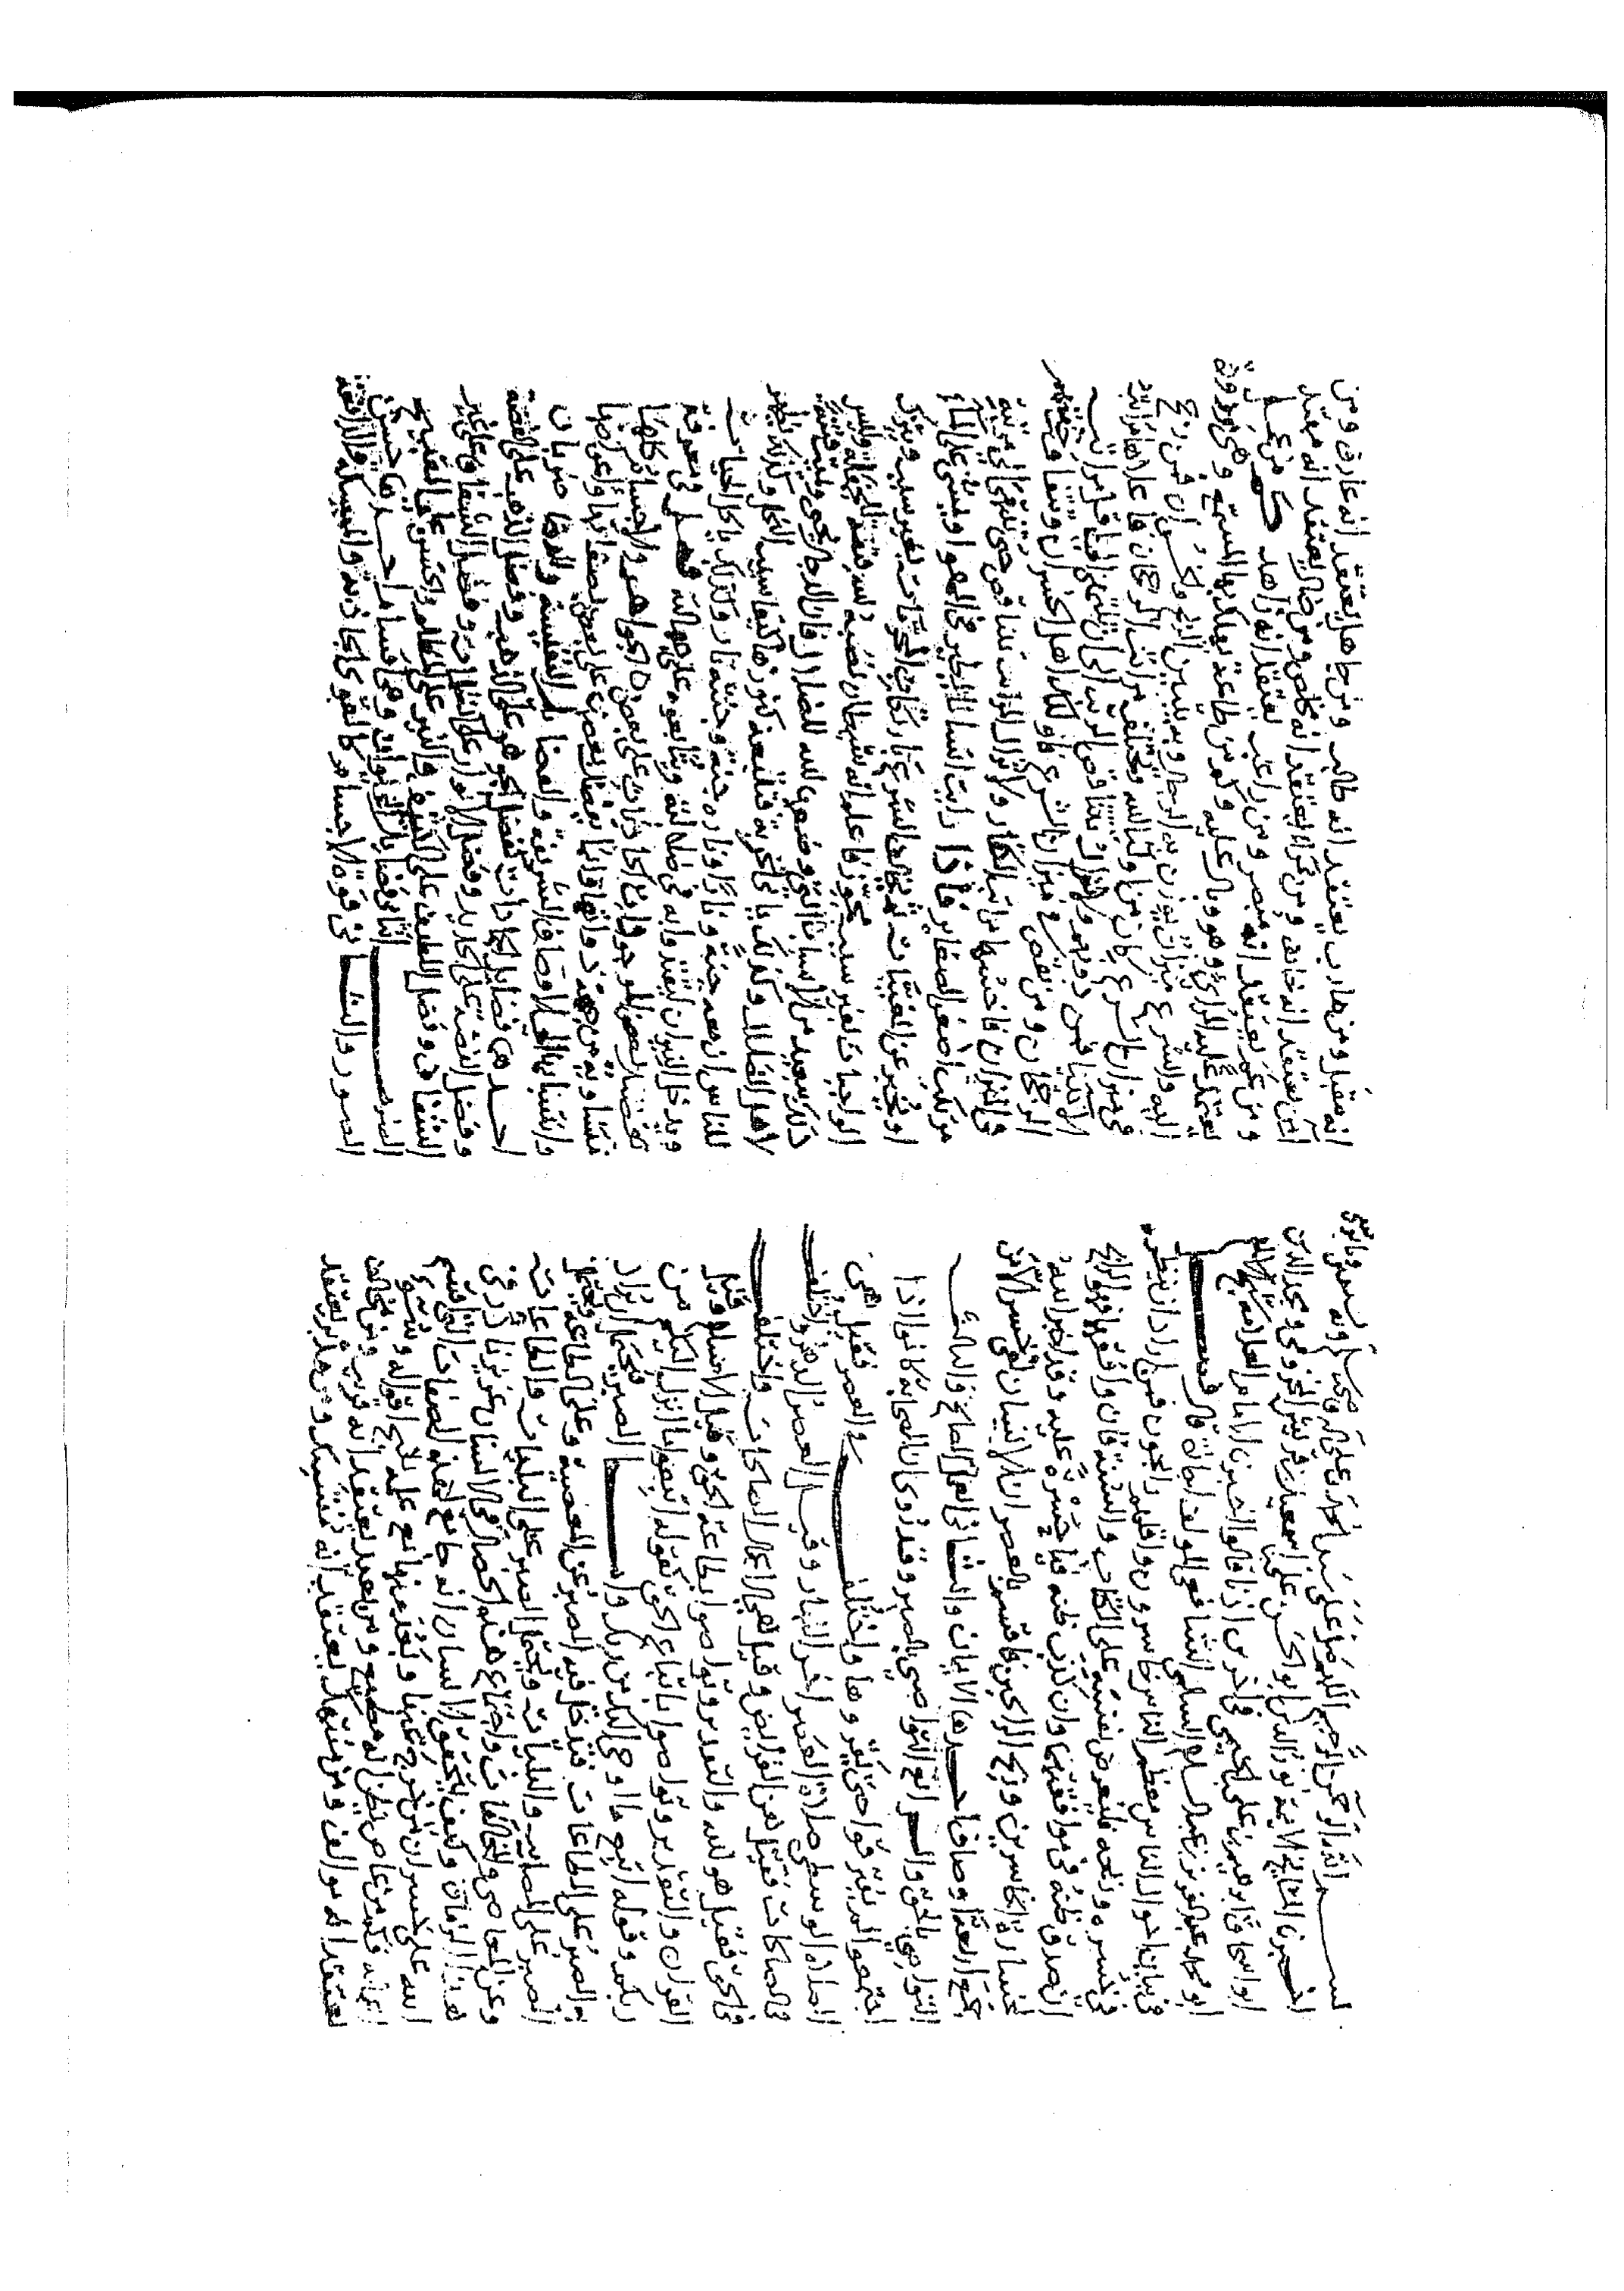 بسم الله الرحمن الرحيم اللهم صل على سيدنا محمد وعلى اله وصحبه وبه نستعين
اخبرنا نور الدين ابو الحسن علي بن اسمعيل بن قريش المخزومي ومجد الدين
ابو اسحاق ابرهيم بن علي الخيمي في اخرين اذنا قالوا اخبرنا الامام العلامة
ابو محمد عبد العزيز بن عبد السلام السلمي الشافعي المولد اجازة قال فصل
في بيان احوال الناس معظم الناس خاسرون واقلهم رابحون فمن اراد ان ينظر
في خسره وربحه فليعرض نفسه على الكتاب والسنة فان وافقهما فهو الرابح
ان صدق ظنه في موافقتهما وان كذب ظنه فيا حسرة عليه وقد اخبر الله
بخسارة الخاسرين وربح الرابحين فاقسم بالعصر ان الانسان لفي خسر الا من
جمع اربعة اوصاف احدها الايمان والثاني العمل الصالح والثالث
التواصي بالحق والرابع التواصي بالصبر وقد روى ان الصحابة كانوا اذا
اجتمعوا لم يفترقوا حتى يقروها واختلف في العصر فقيل هي
الصلاة الوسطى صلاة العصر اخر النهار وقيل العصر الدهر واختلف
في الصالحات فقيل هن الفرايض وقيل هي الاعمال الصالحات واختلف
في الحق فقيل هو الله والتقدير وتواصوا بطاعة الحق وقيل الاسلام وقيل
القران والتقدير وتواصوا باتباع الحق كقوله اتبعوا ما انزل اليكم من
ربكم وقوله اتبع ما اوحي اليك من ربك واما الصبر فيحتمل ان يراد
به الصبر على الطاعات فيدخل فيه الصبر عن المعصية وعلى الطاعة ويحتمل
الصبر على المصايب والبليات ويحتمل الصبر على البليات والطاعات
وعن المعاصي والمخالفات واجتماع هذه الخصال في الانسان عزيز نادر في
هذا الزمان وكيف يتحقق الانسان انه جامع لهذه الصفات التي اقسم
الله على خسران من خرج عنها وبعد منها مع علمه بقبح اقواله وسوء
اعماله فكم من عاص يظن انه مطيع ومن بعيد يعتقد انه قريب ومن مخالف
يعتقد انه موالف ومن منتهك يعتقد انه متنسك ومن مدبر يعتقد
انه مقبل ومن هارب يعتقد انه طالب ومن جاهل يعتقد انه عارف ومن
آمن يعتقد انه خايف ومن مرائي يعتقد انه مخلص ومن ضال يعتقد انه مهتد
ومن عم يعتقد انه مبصر ومن راغب يعتقد انه زاهد كم من عمل
يعتمد عليه المرائي وهو وبال عليه وكم من طاعة يهلك بها المسمع وهي مردودة
اليه والشرع ميزان يوزن به الرجال وبه يتبين الربح والخسران فمن رجح
في ميزان الشرع كان من اولياء الله وتختلف مراتب الرجحان فاعلاها مراتب
الانبيا فمن دونهم ولا تزال تتناقص الرتب الى ان تنتهي الى اقل مراتب
الرجحان ومن نقص في ميزان الشرع فاولئك اهل الخسران وتتفاوت خفتهم
في الميزان فاخسها مراتب الكفار ولا تزال المراتب تتناقص حتى تنتهي الى مرتبة
مرتكب اصغر الصغاير فاذا رايت انسانا يطير في الهوا ويمشي على الماء
او يخبر عن المغيبات ثم يخالف الشرع بارتكاب المحرمات بغير سبب ويترك
الواجبات لغير سبب مجوز فاعلم انه شيطان نصبه الله فتنة للجهلة وليس
ذلك ببعيد من الاسباب التي وضعها الله للضلال فان الدجال يحيي ويميت فتنة
لاهل الضلال وكذلك ياتي الخربة فتتبعه كنوزها كيعاسيب النحل وكذلك يظهر
للناس ان معه جنة ونارا وناره جنة وجنته نار وكذلك ياكل الحيات
ويدخل النيران ليقتدوا به في ضلالته ويتابعوه على جهالته فصل في معرفة
تفضيل بعض الموجودات الحادثات على بعض الجواهر والاجسام كلها
متساوية من جهة ذواتها وانما يفضل بعضها على بعض بصفاتها واعراضها
وانتسابها الى الاوصاف الشريفة والفضايل النفيسة والفضايل ضربان
احدهما فضايل الجمادات كفضل الجوهر على الذهب وفضل الذهب على الفضة
وفضل الفضة على الحديد وفضل الانوار على الظلمات وفضل الشفاف على غير
الشفاف وفضل اللطيف على الكثيف والنير على المظلم والحسن على القبيح
الضرب الثاني فضايل الحيوان وهي اقسام احدها حسن
الصور والثاني قوة الاجسام كالقوى الجاذبة والممسكة والدافعة